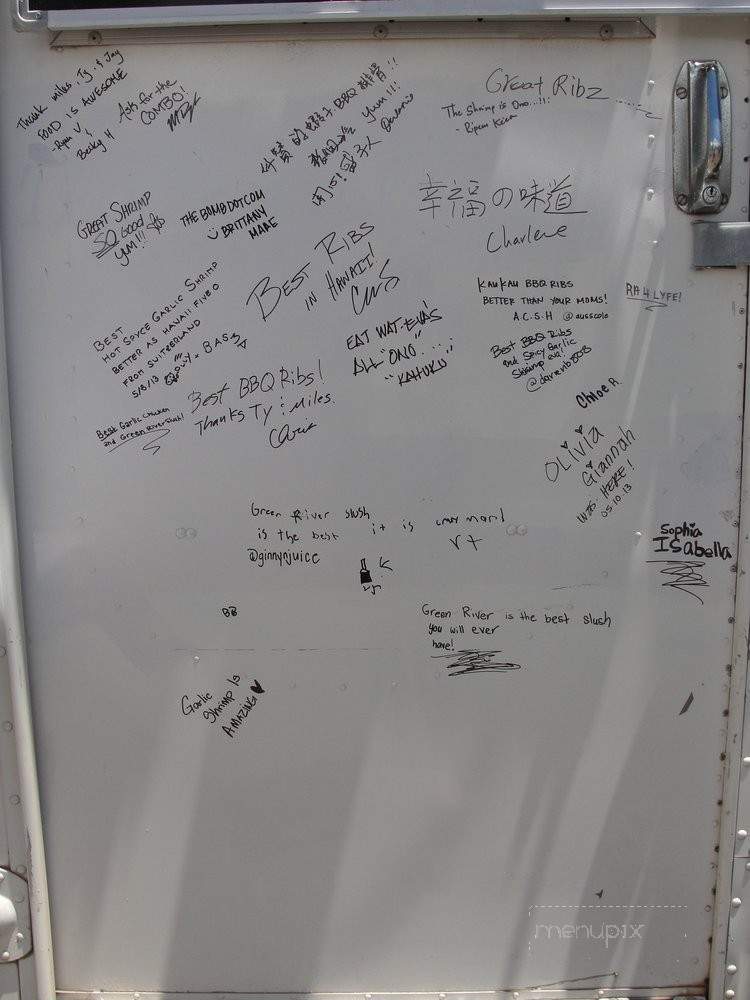 Thank miles, Ty, & Jay
FOOD IS AWESOME
-Ryan V.
&
Becky H
Asks for the
COMBO!
BBQ
Yum!!!
Great Ribz
The Shrimp is Ono...!!!
GREAT SHRIMP
SO GOOD
YM!!!
THE BOMB DOT COM
BRITTANY
MARE
幸福の味道
Charlene
BEST RIBS
IN HAWAII!
BEST
HOT SPYCE GARLIC SHRIMP
BETTER AS HAWAII FIVE O
FROM SWITZERLAND
5/8/13
KAUKAU BBQ RIBS
BETTER THAN YOUR MOMS!
A.C.S.H @ausscole
RH 4 LYFE!
EAT WAT-EVA'S
ALL "ONO".....
"KAHUKU"
Best BBQ Ribs
and Spicy Garlic
Shrimp eva!
Best BBQ Ribs!
Thanks Ty & Miles.
Chris
Best Garlic Chicken
and Green River Slush!
Chloe A
OLiViA
Giannah
WAS HERE!
05.10.13
Green River slush
is the best it is
@ginnynjuice
Sophia
ISabella
BB
Green River is the best slush
you will ever
have!
Garlic
Shrimp Is
AMAZING
menupix